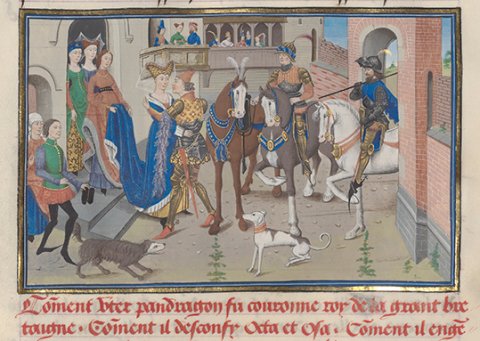 Cõment vter pandragon fu couronne roy de la grant bre
taigne · Cõment il desconfy Octa et Osa · Cõment il engẽ